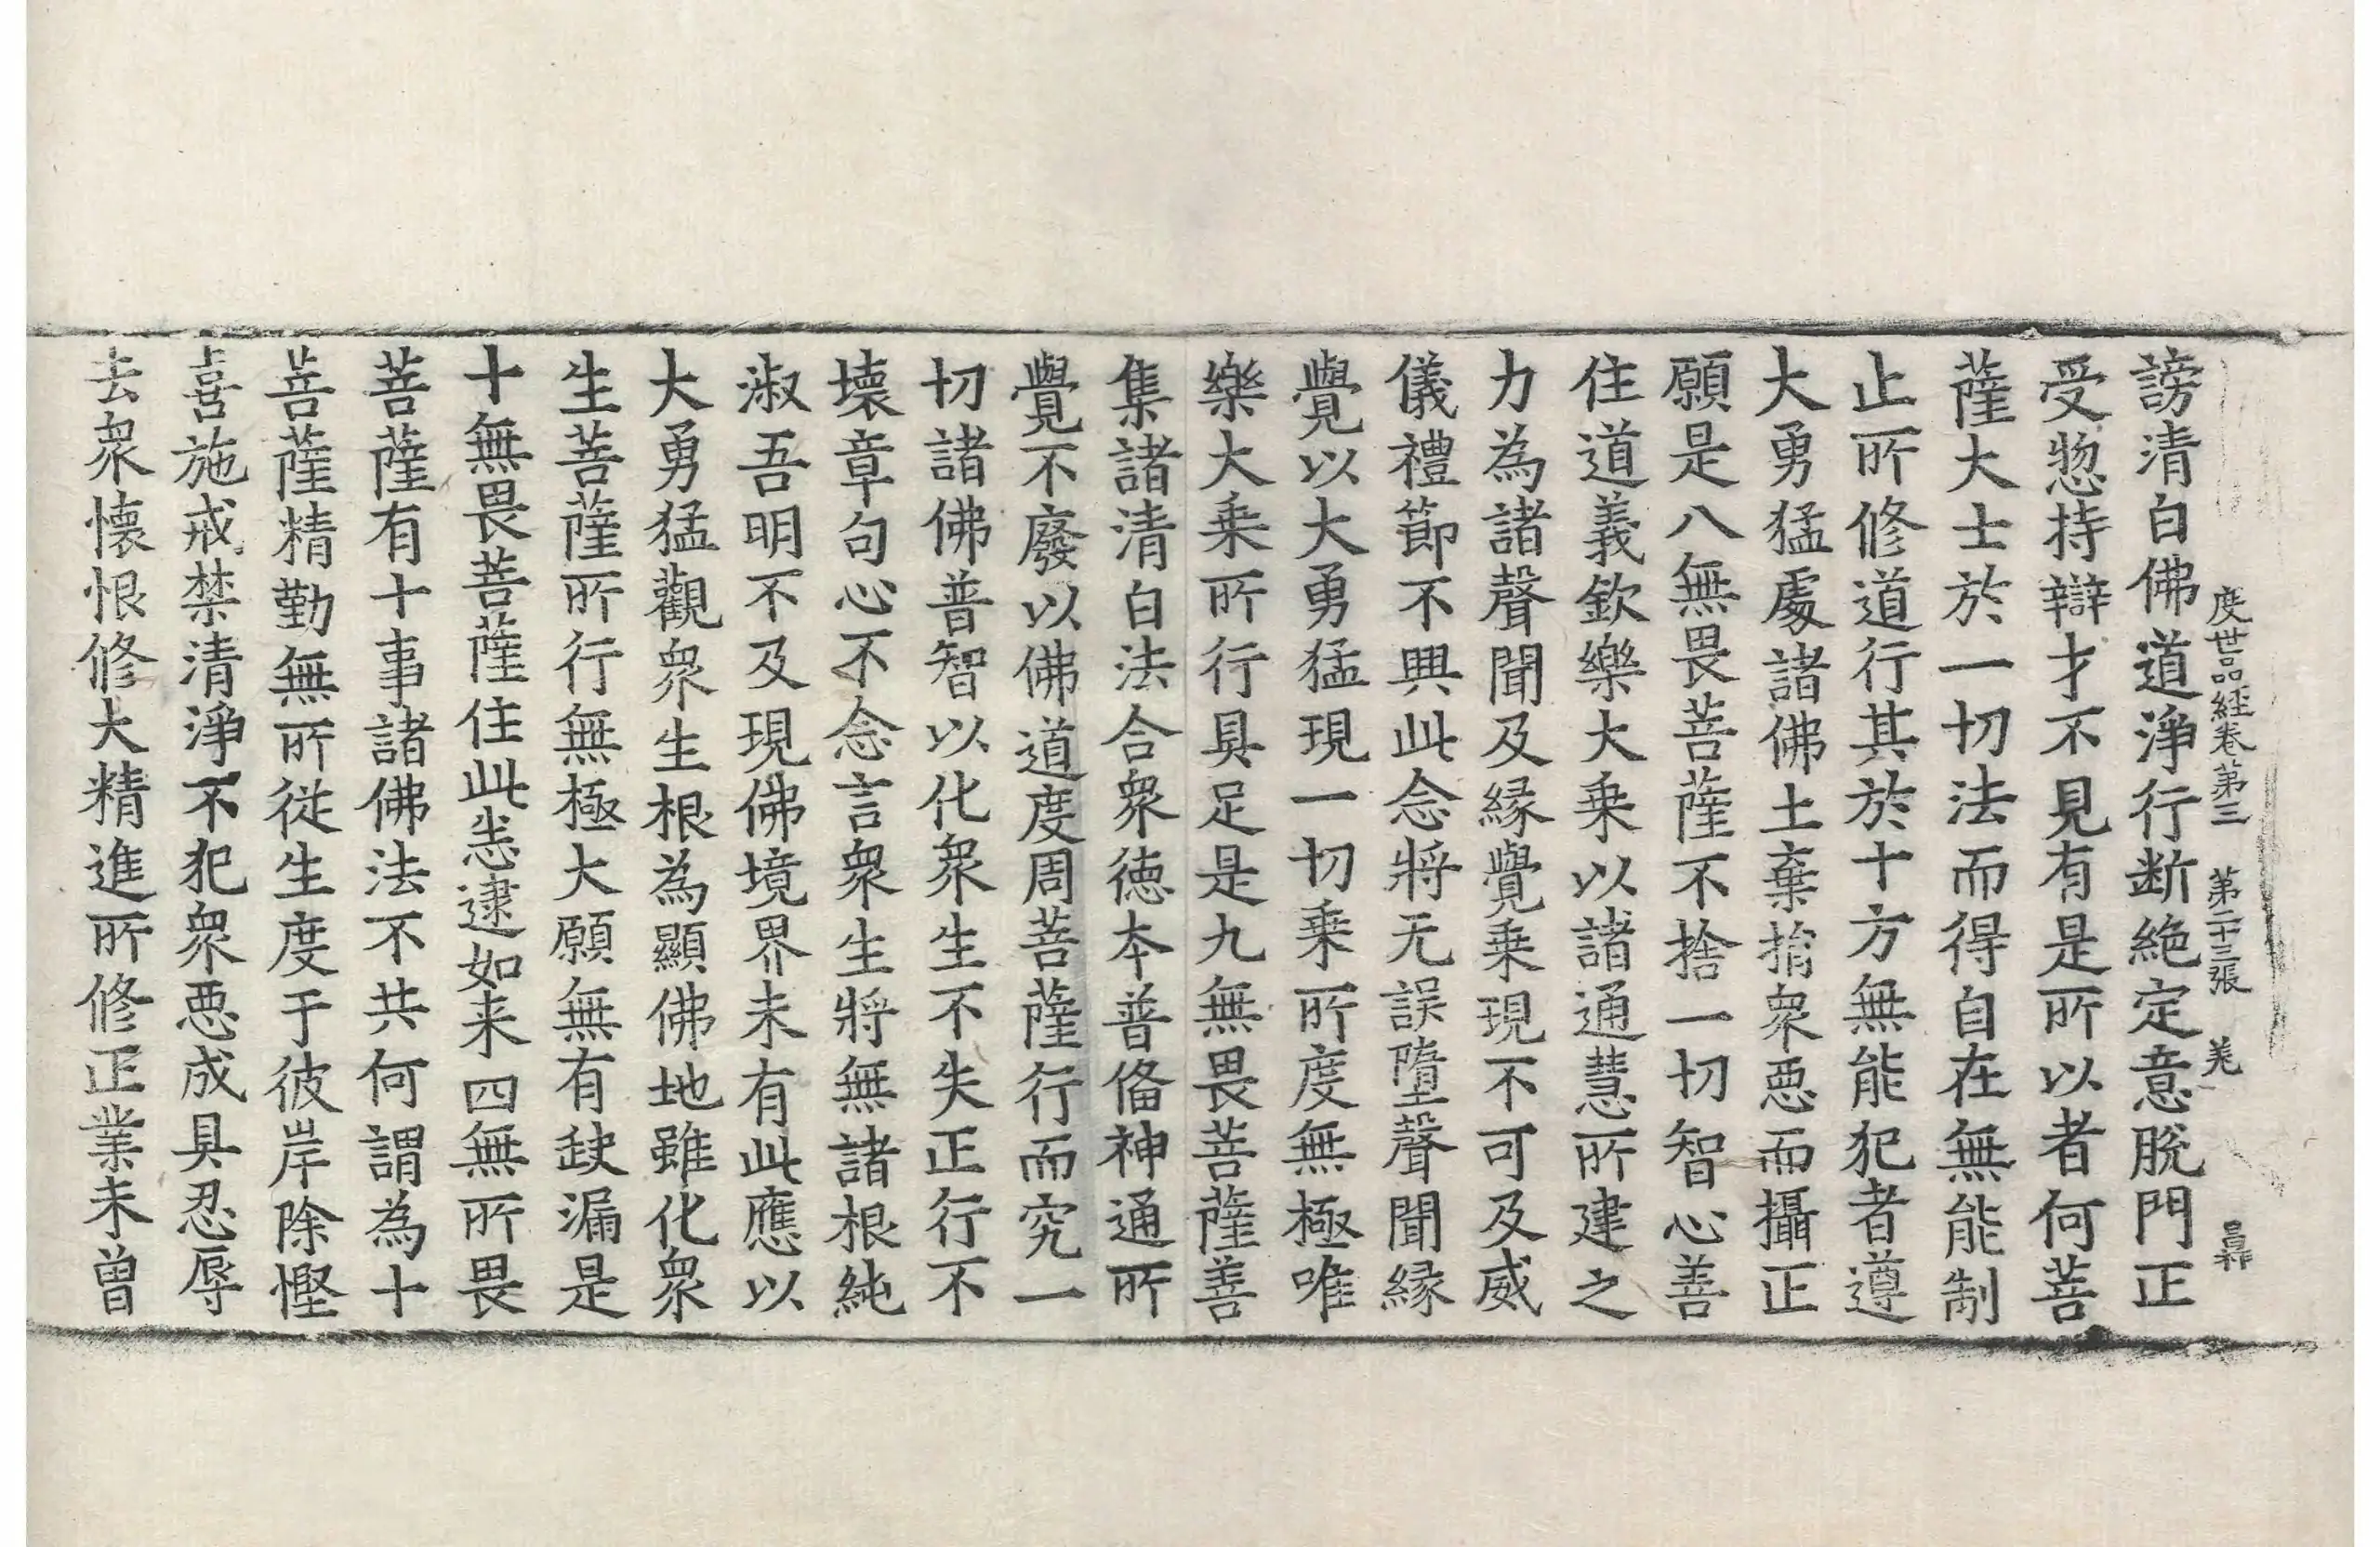 度世品經卷第三 第二十三張 羌
謗清白佛道淨行断絶定意脫門正
受惣持辯才不見有是所以者何菩
薩大士於一切法而得自在無能制
止所修道行其於十方無能犯者遵
大勇猛處諸佛土棄捐衆惡而攝正
願是八無畏菩薩不捨一切智心善
住道義欽樂大乗以諸通慧所建之
力為諸聲聞及縁覺乗現不可及威
儀禮節不興此念將无誤墮聲聞縁
覺以大勇猛現一切乗所度無極唯
樂大乗所行具足是九無畏菩薩善
集諸清白法合衆徳本普俻神通所
覺不廢以佛道度周菩薩行而究一
切諸佛普智以化衆生不失正行不
壊章句心不念言衆生將無諸根純
淑吾明不及現佛境界未有此應以
大勇猛觀衆生根為顯佛地雖化衆
生菩薩所行無極大願無有缺漏是
十無畏菩薩住此恙逮如来四無所畏
菩薩有十事諸佛法不共何謂為十
菩薩精勤無所從生度于彼岸除慳
喜施戒禁清淨不犯衆惡成具忍辱
去衆懐恨修大精進所修正業未曾